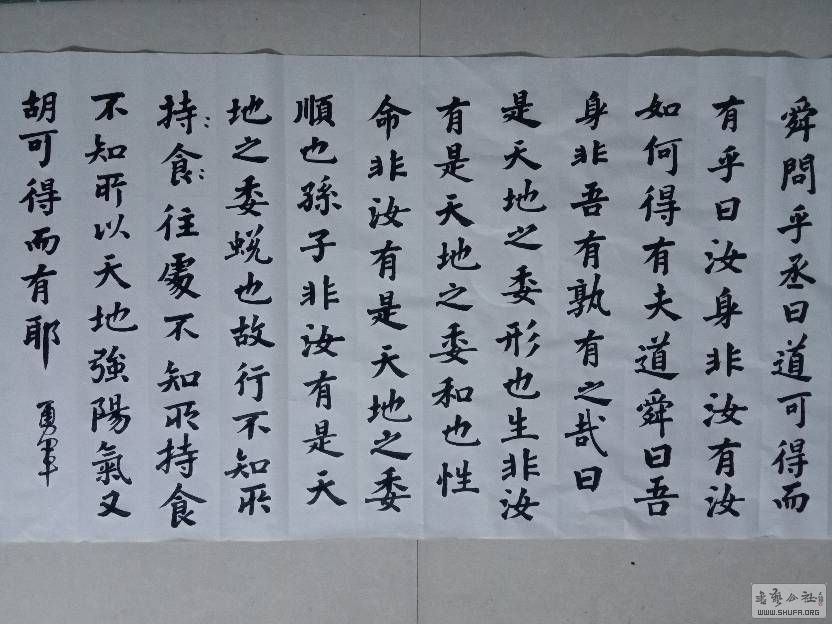 舜問乎丞曰道可得而
有乎曰汝身非汝有汝
如何得有夫道舜曰吾
身非吾有孰有之哉曰
是天地之委形也生非汝
有是天地之委和也性
命非汝有是天地之委
順也孫子非汝有是天
地之委蜕也故行不知所
持:食:往處不知所持食
不知所以天地強陽氣又
胡可得而有耶
勇軍
书艺公社
WWW.SHUFA.ORG